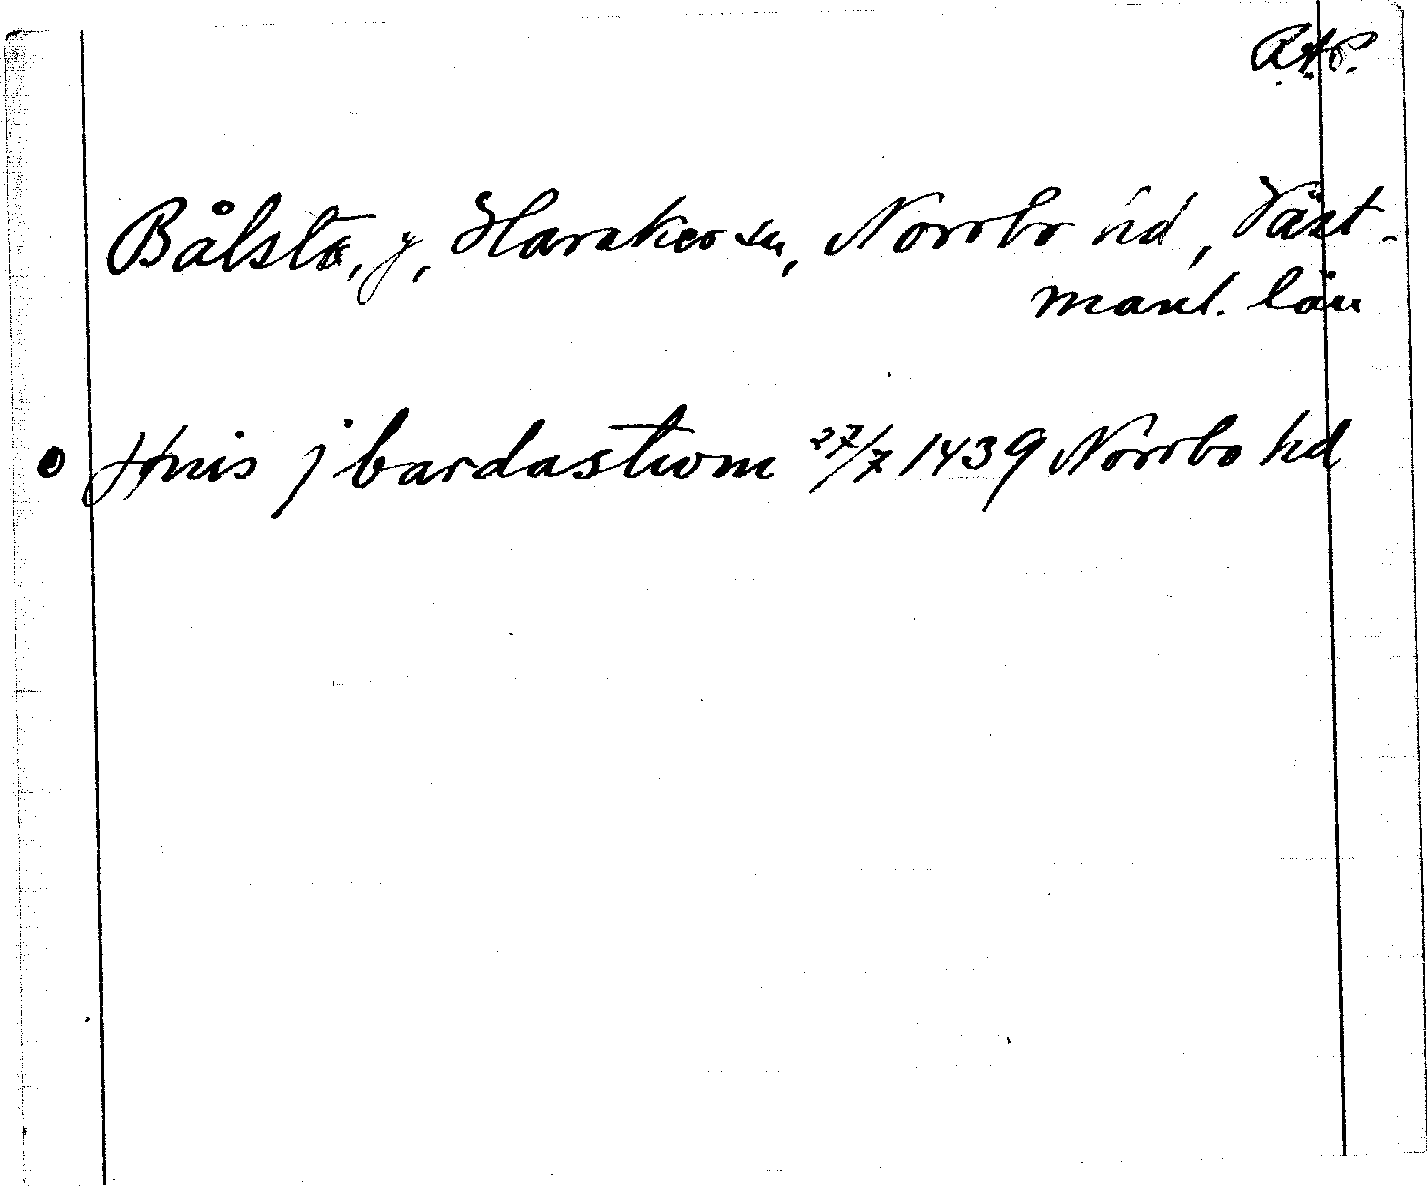 R.A.P.
Bålsta, g, Haraker sn, Norrbo hd, Väst-
manl. län
Jönis j bardastwm 27/7 1439 Norrbo hd